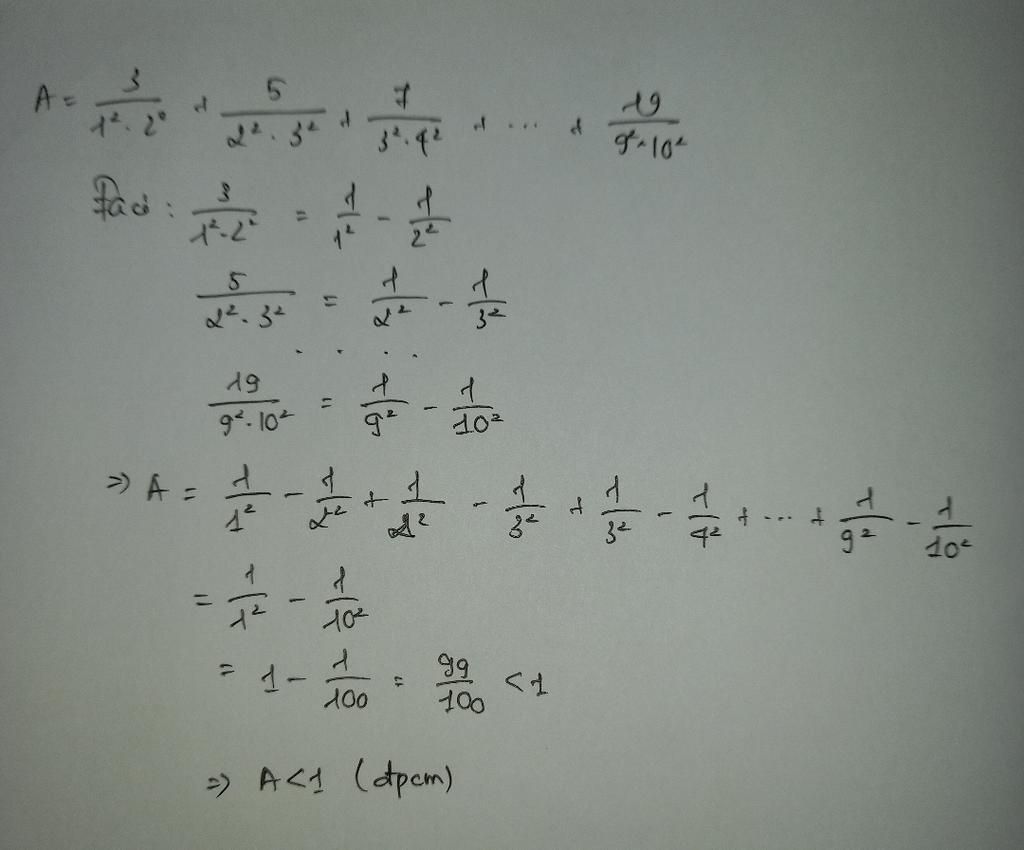 A = 3/(1². 2²) + 5/(2². 3²) + 7/(3². 4²) + ... + 19/(9². 10²)
: 3/(1². 2²) = 1/1² - 1/2²
5/(2². 3²) = 1/2² - 1/3²
. . . .
19/(9². 10²) = 1/9² - 1/10²
=> A = 1/1² - 1/2² + 1/2² - 1/3² + 1/3² - 1/4² + ... + 1/9² - 1/10²
= 1/1² - 1/10²
= 1 - 1/100 = 99/100 < 1
=> A < 1 (đpcm)